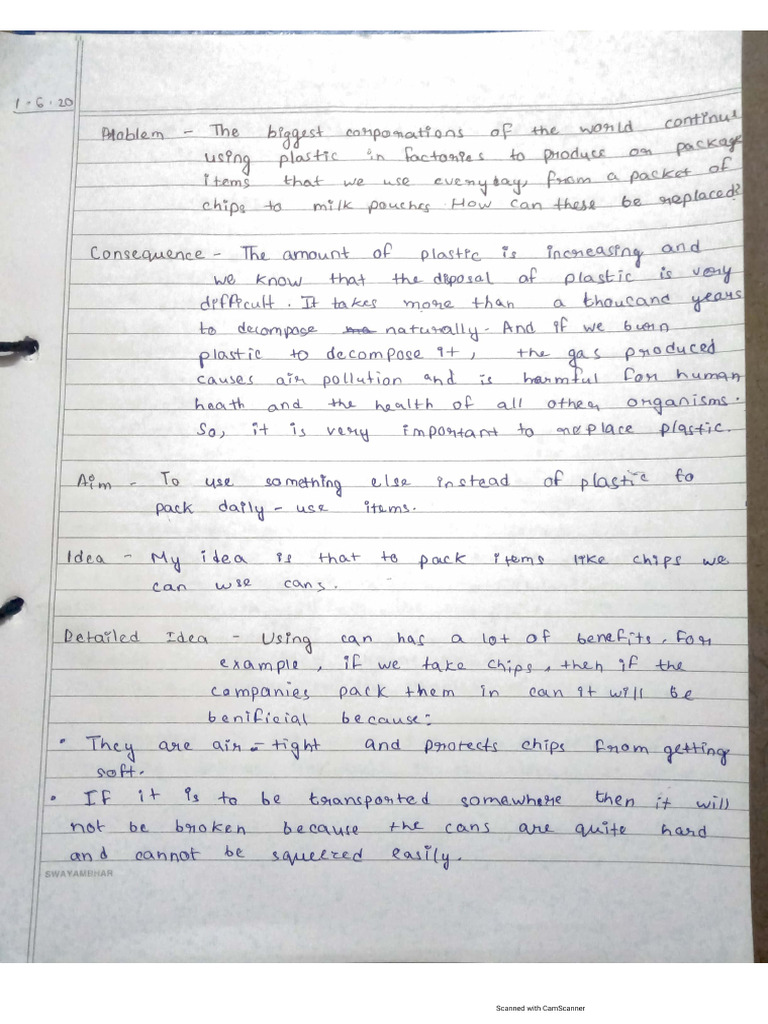 1.6.20
Problem - The biggest corporations of the world continue
using plastic in factories to produce or package
items that we use everyday, from a packet of
chips to milk pouches How can these be replaced?
Consequence - The amount of plastic is increasing and
we know that the disposal of plastic is very
difficult. It takes more than a thoucand years
to decompose naturally. And if we burn
plastic to decompose it, the gas produced
causes air pollution and is harmful for human
heath and the health of all other organisms.
So, it is very important to replace plastic.
Aim - To use something else instead of plastic to
pack daily-use items.
Idea - My idea is that to pack items like chips we
can use cans.
Detailed Idea - Using can has a lot of benefits. For
example, if we take chips, then if the
companies pack them in can it will be
benificial because:
• They are air-tight and protects chips from getting
soft.
• If it is to be transported somewhere then it will
not be broken because the cans are quite hard
and cannot be squeezed easily.
SWAYAMBHAR
Scanned with CamScanner